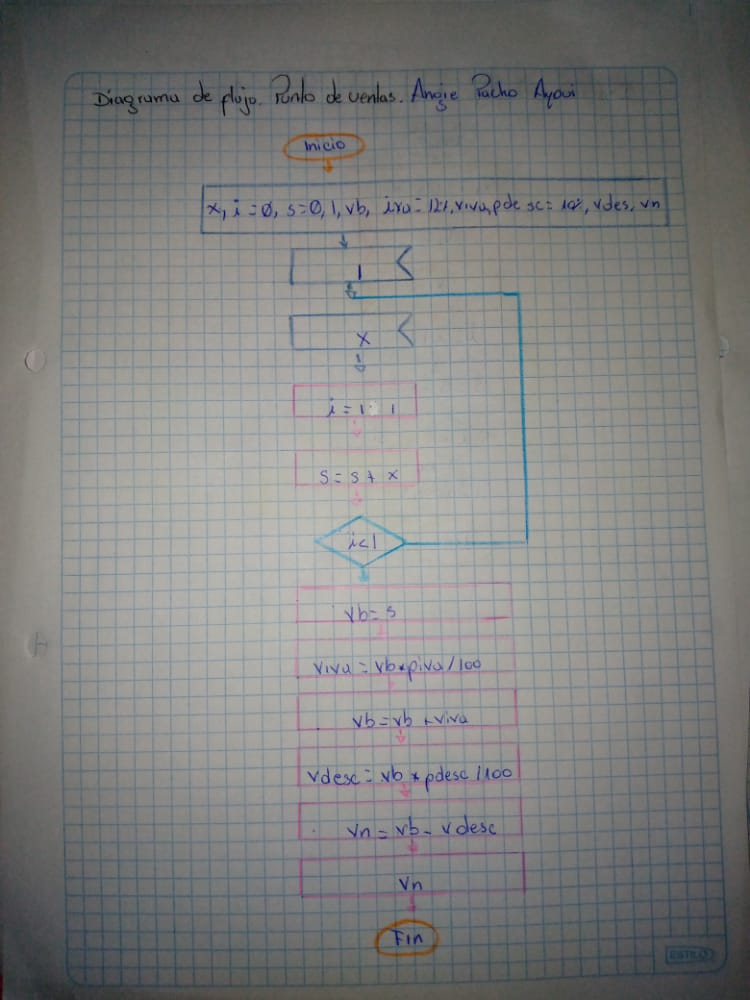 Diagrama de flujo. Punto de ventas. Angie Pucho Ayovi
Inicio
x, i=0, s=0, l, vb, iva=12%, viva, pdesc=10%, vdes, vn
l
x
i = 1 1
s = s + x
i<l
vb= s
viva = vb*piva/100
vb=vb +viva
vdesc = vb * pdesc /100
vn = vb - vdesc
vn
Fin
ESTILO